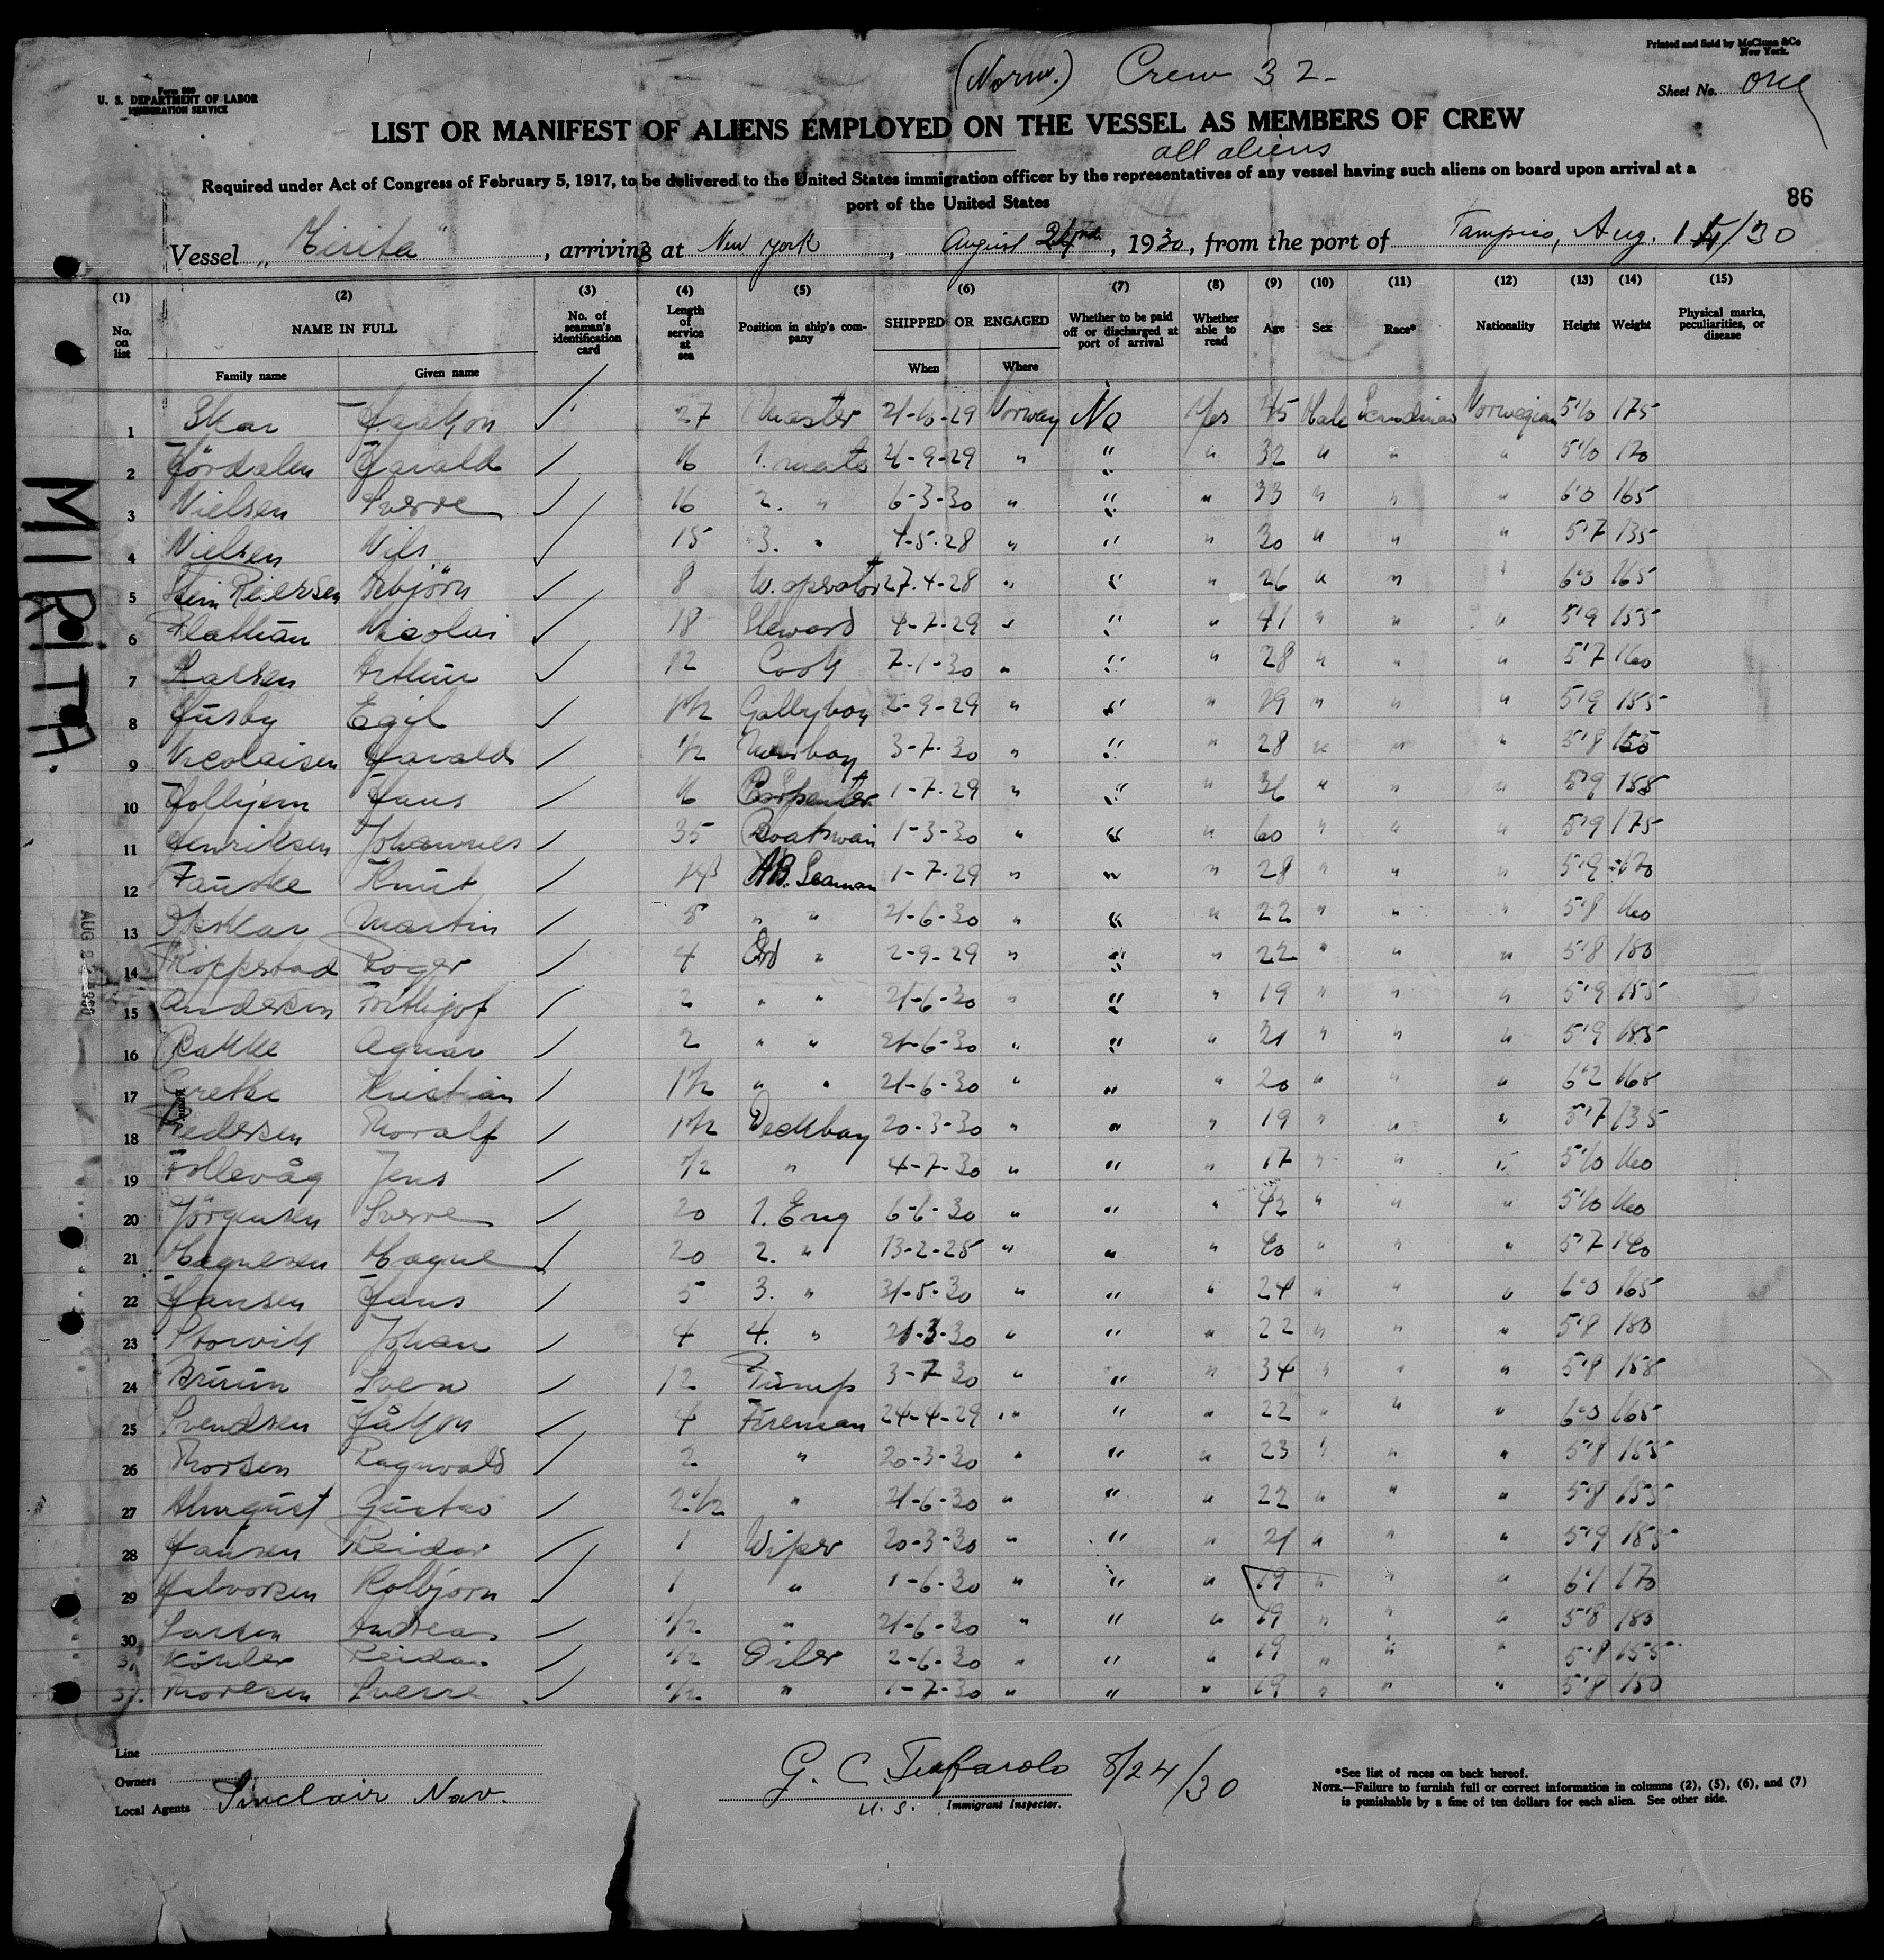 Printed and Sold by McClunn &Co
New York.
(Norw.) Crew 32-
Form 680
U. S. DEPARTMENT OF LABOR
IMMIGRATION SERVICE
Sheet No. one
LIST OR MANIFEST OF ALIENS EMPLOYED ON THE VESSEL AS MEMBERS OF CREW
all aliens
Required under Act of Congress of February 5, 1917, to be delivered to the United States immigration officer by the representatives of any vessel having such aliens on board upon arrival at a
port of the United States
86
Vessel "Mirita", arriving at New York, August 24, 1930, from the port of Tampico, Aug. /30
(1) (2) (3) (4) (5) (6) (7) (8) (9) (10) (11) (12) (13) (14) (15)
No. on list NAME IN FULL No. of seaman's identification card Length of service at sea Position in ship's company SHIPPED OR ENGAGED Whether to be paid off or discharged at port of arrival Whether able to read Age Sex Race* Nationality Height Weight Physical marks, peculiarities, or disease
Family name Given name When Where
1 Skar Haakon 27 Master 21-6-29 Norway No Yes 45 Male Norwegian 5'10 175
2 Harald 16 1. mate 29 " " " 32 " " " 5'10
3 Nielsen Sverre 16 2. " 6-3-30 " " " 33 " " " 6'0 165
4 Nielsen Nils 15 3. " 4-5-28 " " " 30 " " " 5'7 135
5 Reiersen 8 W. operator 27-4-28 " " " 26 " " " 6'0 165
6 Nicolai 18 Steward 4-7-29 " " " 41 " " " 5'9 155
7 Larsen Arthur 12 Cook 7-1-30 " " " 28 " " " 5'7 160
8 Husby Egil 1 1/2 Galleyboy 2-9-29 " " " 19 " " " 5'9 155
9 Nicolaisen Harald 1/2 Messboy 3-7-30 " " " 28 " " " 5'8
10 Hans 16 Carpenter 1-7-29 " " " 36 " " " 5'9
11 Henriksen Johannes 35 Boatswain 1-3-30 " " " 60 " " " 5'9 175
12 Fauske Knut AB. Seaman 1-7-29 " " " 28 " " " 5'9
13 Martin " " 21-6-30 " " " 22 " " " 5'8 160
14 Roger 4 Ord " 2-9-29 " " " 22 " " " 5'8
15 Andersen Frithjof 2 " " 21-6-30 " " " 19 " " " 5'9 155
16 Bakke Agnar 2 " " 21-6-30 " " " 21 " " " 5'9
17 Kristian 1 1/2 " " 21-6-30 " " " 20 " " " 6'2 165
18 Pedersen Thoralf 1 1/2 Deckboy 20-3-30 " " " 19 " " " 5'7 135
19 Follevåg Jens 1/2 " 4-7-30 " " " 17 " " " 5'10 160
20 Jörgensen Sverre 20 1. Eng 6-6-30 " " " 42 " " " 5'10 160
21 Magnesen Magne 20 2. " 13-2-25 " " " 40 " " " 5'7
22 Hansen Hans 5 3. " 31-5-30 " " " 24 " " " 6'0 165
23 Storvik Johan 4 4. " 21-3-30 " " " 22 " " " 5'8
24 Bruun Sven 12 Pump 3-7-30 " " " 34 " " " 5'8
25 Svendsen Håkon 4 Fireman 24-4-29 " " " 22 " " " 6'0 165
26 Thorsen Ragnvald 2 " 20-3-30 " " " 23 " " " 5'8 155
27 Almquist Gustav 2 1/2 " 21-6-30 " " " 22 " " " 5'8 155
28 Reidar 1 Wiper 20-3-30 " " " 21 " " " 5'9
29 Halvorsen Kolbjorn 1 " 1-6-30 " " " 19 " " " 6'1 170
30 Larsen Andreas 1/2 " 21-6-30 " " " 19 " " " 5'8
31 Köhler Reidar 1/2 Oiler 2-6-30 " " " 19 " " " 5'8 155
32. Thoresen Sverre 1/2 " 1-7-30 " " " 19 " " " 5'8 150
MIRITA.
Line
Owners
Local Agents Sinclair Nav.
G. C. 8/24/30
U. S. Immigrant Inspector.
*See list of races on back hereof.
NOTE.—Failure to furnish full or correct information in columns (2), (5), (6), and (7)
is punishable by a fine of ten dollars for each alien. See other side.